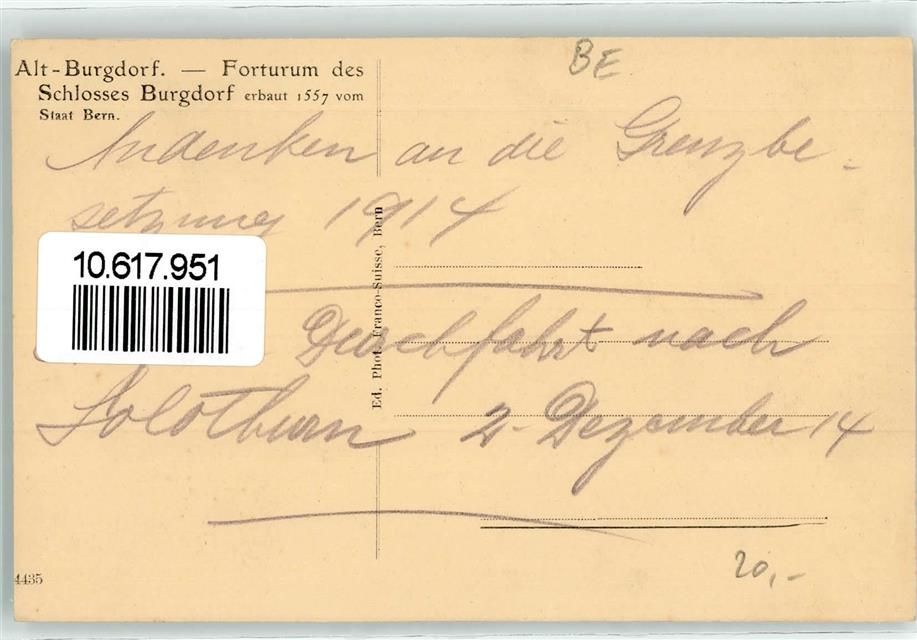 Alt-Burgdorf. — Forturum des
Schlosses Burgdorf erbaut 1557 vom
Staat Bern.
BE
Andenken an die Grenzbe-
setzung 1914
10.617.951
Ed. Phot. Franco-Suisse, Bern
Durchfahrt nach
Solothurn 2. Dezember 14
20,-
4435